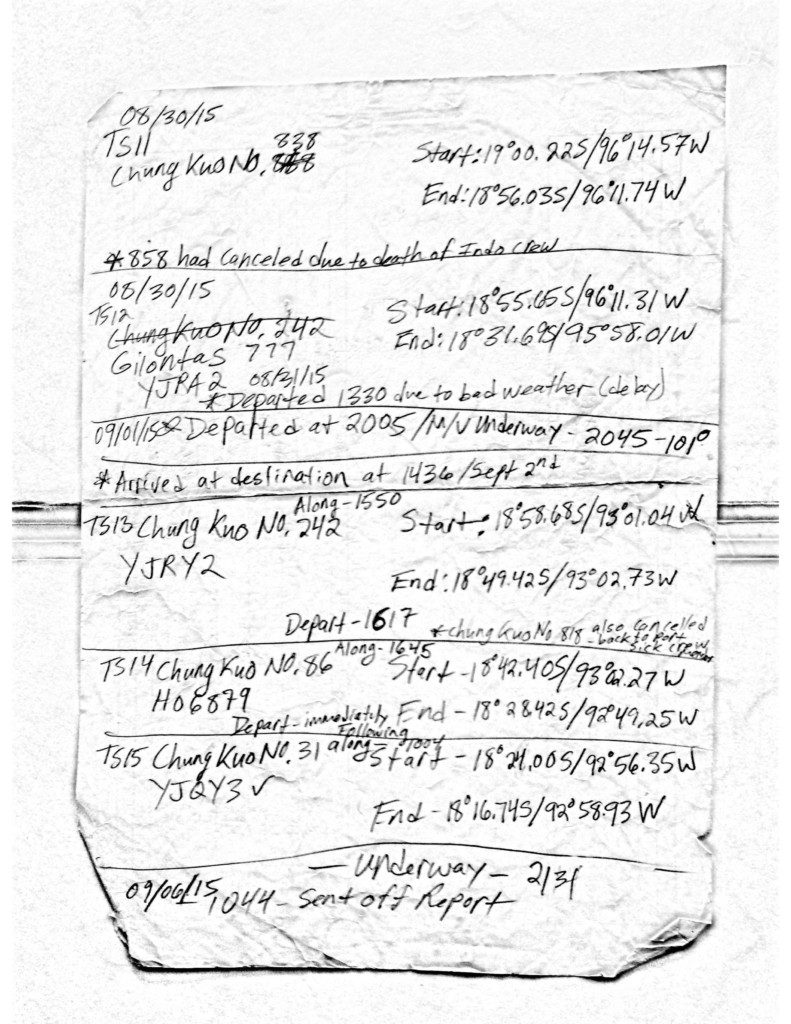 08/30/15
TS11 838
Chung Kuo No. Start: 19°00.22S/96°14.57W
End: 18°56.03S/96°11.74W
*858 had Canceled due to death of Indo crew
08/30/15
TS12 Start: 18°55.65S/96°11.31W
Chung Kuo No. 242 End: 18°31.69S/95°58.01W
Gilontas 777
YJPA2 08/31/15
*Departed 1330 due to bad weather (delay)
09/01/15 Departed at 2005/M/V Underway - 2045-101°
*Arrived at destination at 1436/Sept 2nd
Along-1550
TS13 Chung Kuo No. 242 Start: 18°58.68S/93°01.04W
YJRY2
End: 18°49.42S/93°02.73W
Depart-1617 *Chung Kuo No 818 also cancelled
- back to port
sick crew
Along-1645
TS14 Chung Kuo No. 86 Start - 18°42.40S/93°02.27W
HO6879
Depart-immediately End - 18°28.42S/92°49.25W
Following
TS15 Chung Kuo No. 31 along Start - 18°21.00S/92°56.35W
YJQY3 ✓
End - 18°16.74S/92°58.93W
— Underway - 2131
09/06/15 1044 - Sent off Report